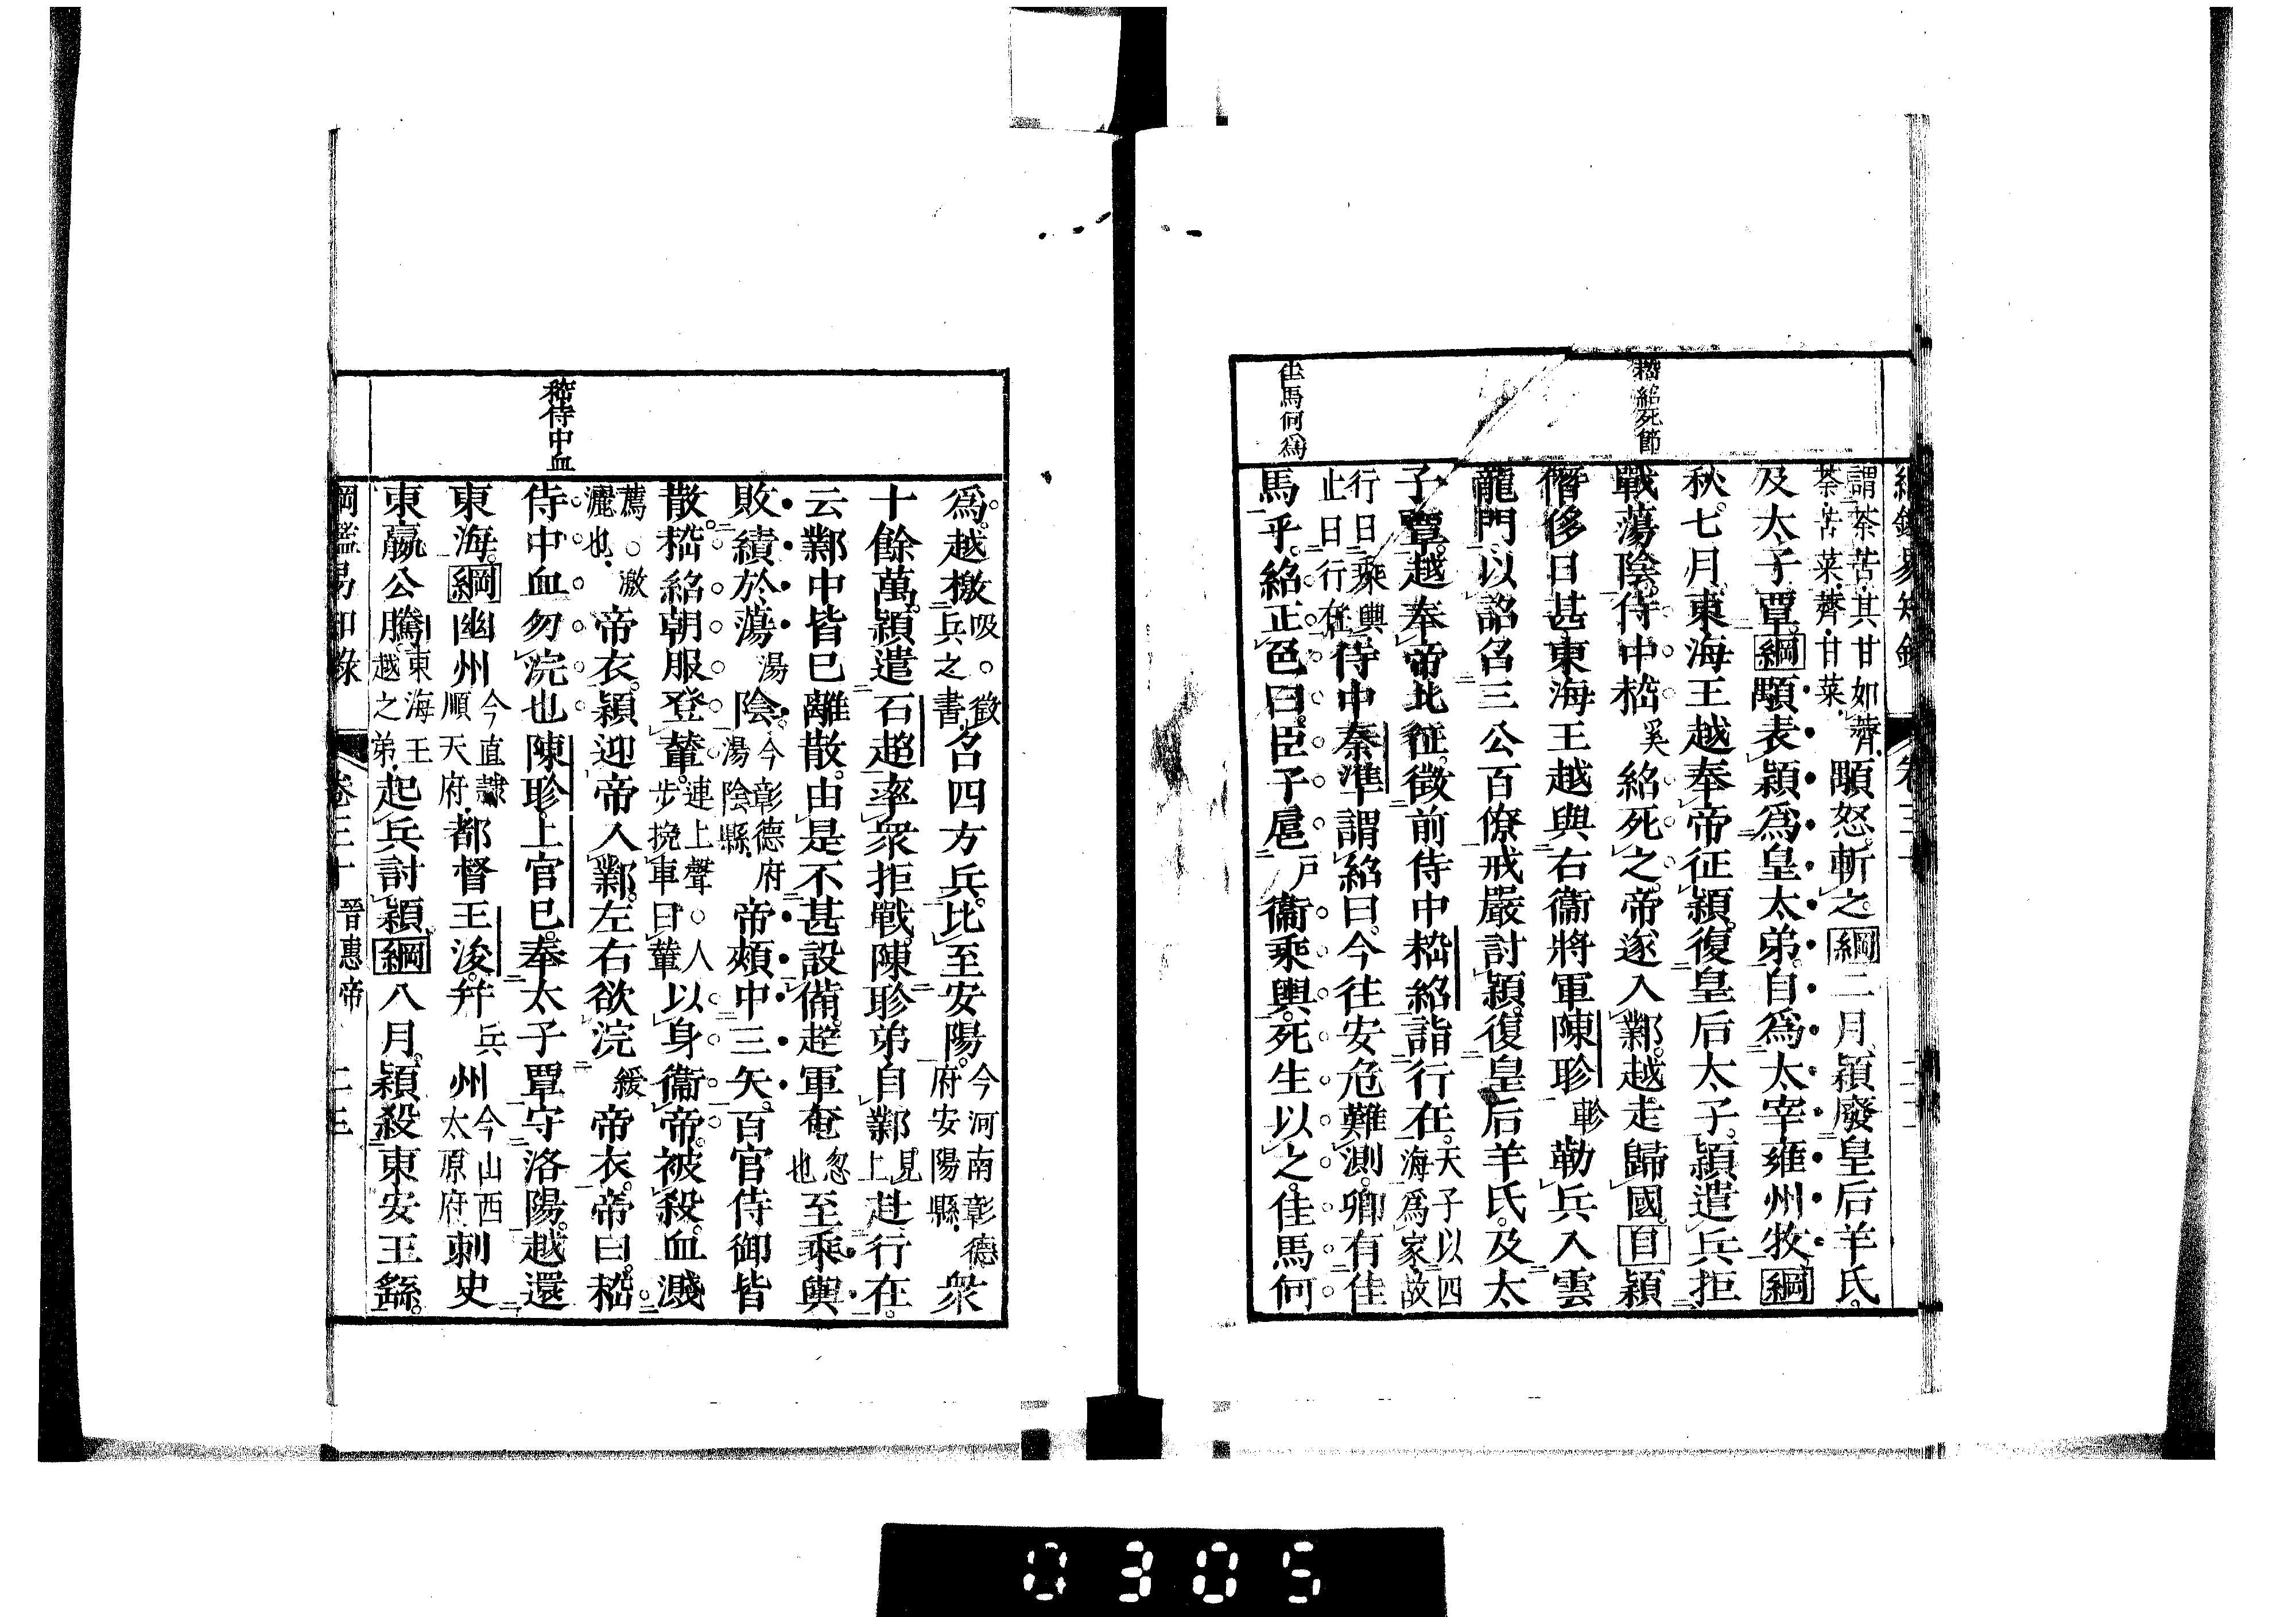 嵇紹死節
佳馬何爲
謂荼苦其甘如薺
荼苦菜薺甘菜
顒怒斬之綱二月穎廢皇后羊氏
及太子覃綱顒表穎爲皇太弟自爲太宰雍州牧綱
秋七月東海王越奉帝征穎復皇后太子穎遣兵拒
戰蕩陰侍中嵇奚紹死之帝遂入鄴越走歸國目穎
僭侈日甚東海王越與右衞將軍陳眕軫勒兵入雲
龍門以詔召三公百僚戒嚴討穎復皇后羊氏及太
子覃越奉帝北征徵前侍中嵇紹詣行在天子以四
海爲家故
行日乘輿
止日行在侍中秦準謂紹曰今往安危難測卿有佳
馬乎紹正色曰臣子扈戶衞乘輿死生以之佳馬何
嵇侍中血
爲越檄吸○徵
兵之書召四方兵比至安陽今河南彰德
府安陽縣衆
十餘萬穎遣石超率衆拒戰陳眕弟自鄴見
上赴行在
云鄴中皆已離散由是不甚設備超軍奄忽
也至乘輿
敗績於蕩湯陰今彰德府
湯陰縣帝頰中三矢百官侍御皆
散嵇紹朝服登輦連上聲○人
步挽車曰輦以身衞帝被殺血濺
薦○激
灑也帝衣穎迎帝入鄴左右欲浣緩帝衣帝曰嵇
侍中血勿浣也陳眕上官巳奉太子覃守洛陽越還
東海綱幽州今直隷
順天府都督王浚幷兵州今山西
太原府刺史
東嬴公騰東海王
越之弟起兵討穎綱八月穎殺東安王繇
綱鑑易知錄 卷三十 晉惠帝 二三